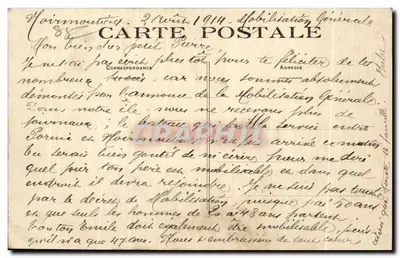 Noirmoutier 2 Août 1914 - Mobilisation Générale
Mon bien cher petit Pierre,
CARTE POSTALE
CORRESPONDANCE
ADRESSE
Je n'ai pas écrit plus tôt pour te féliciter de tes
nombreux succès, car nous sommes absolument
démontés par l'annonce de la Mobilisation Générale.
Dans notre île, nous ne recevons plus de
journaux
service entre
Pornic et Noirmoutier
arrivé ce matin
Tu serais bien gentil de m'écrire, pour me dire
quel jour ton père est mobilisable et dans quel
endroit il devra rejoindre. Je ne suis pas touché
par le décret de Mobilisation, puisque j'ai 50 ans
et que seuls les hommes de 20 à 48 ans partent
tonton Emile doit également être mobilisable, puis
qu'il n'a que 47 ans. Nous t'embrassons de tout cœur
ainsi que toute la famille
Carte-Postale